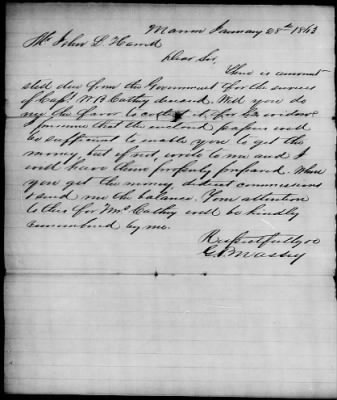 January 28th 1863
Mr John L.
Dear Sir,
There is amount
due from the Government for the services
of Capt W B Cathey deceased. Will you do
me the favor to collect it, for his widow
I presume that the enclosed papers will
be sufficient to enable you to get the
money, but if not, write to me and I
will have them properly prepared. When
you get the money, deduct commissions
& send me the balance. Your attention
to this for Mrs Cathey will be kindly
remembered by me.
Respectfully &c
Massey